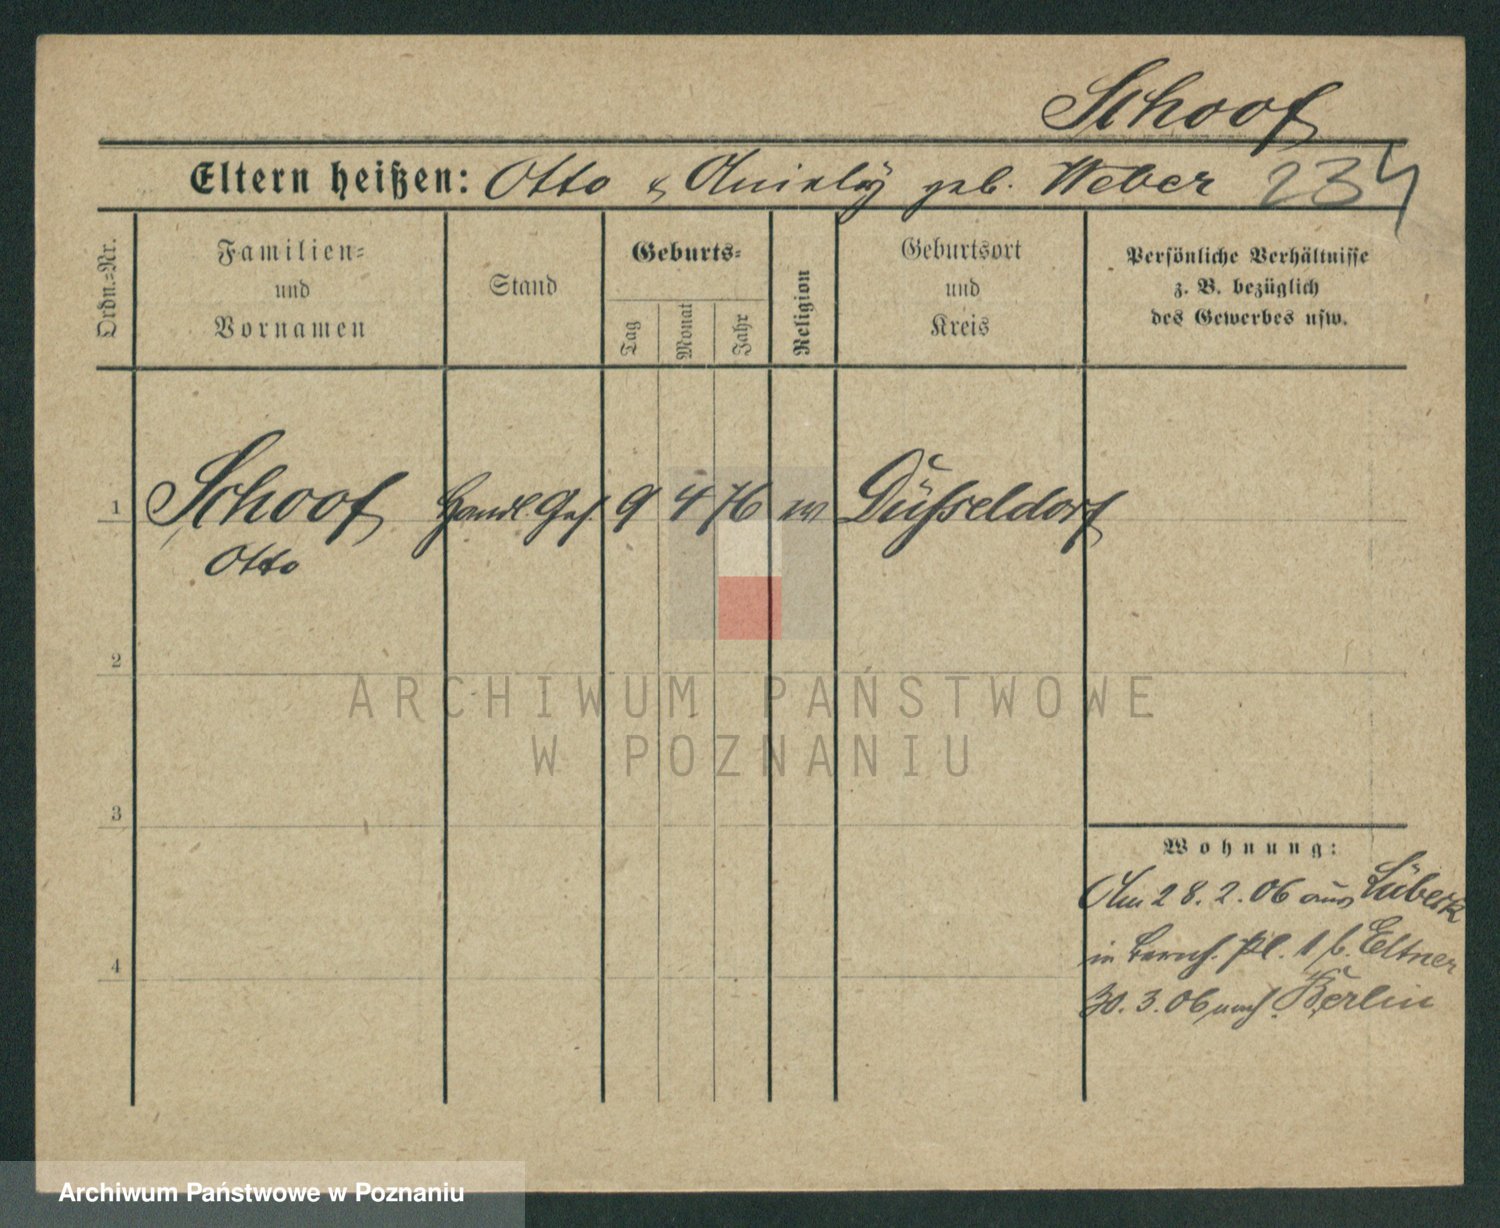 Schoof
Eltern heißen: Otto & geb. Weber 234
Ordn.=Nr.
Familien=
und
Vornamen
Stand
Geburts=
Tag
Monat
Jahr
Religion
Geburtsort
und
Kreis
Persönliche Verhältnisse
z. B. bezüglich
des Gewerbes usw.
1 Schoof Handl. Geh. 9 4 76 Düsseldorf
Otto
2
3
4
Wohnung:
Am 28.2.06 aus Lübeck
in Pl. 1 b. Eltner
30.3.06 nach Berlin
ARCHIWUM PAŃSTWOWE
W POZNANIU
Archiwum Państwowe w Poznaniu